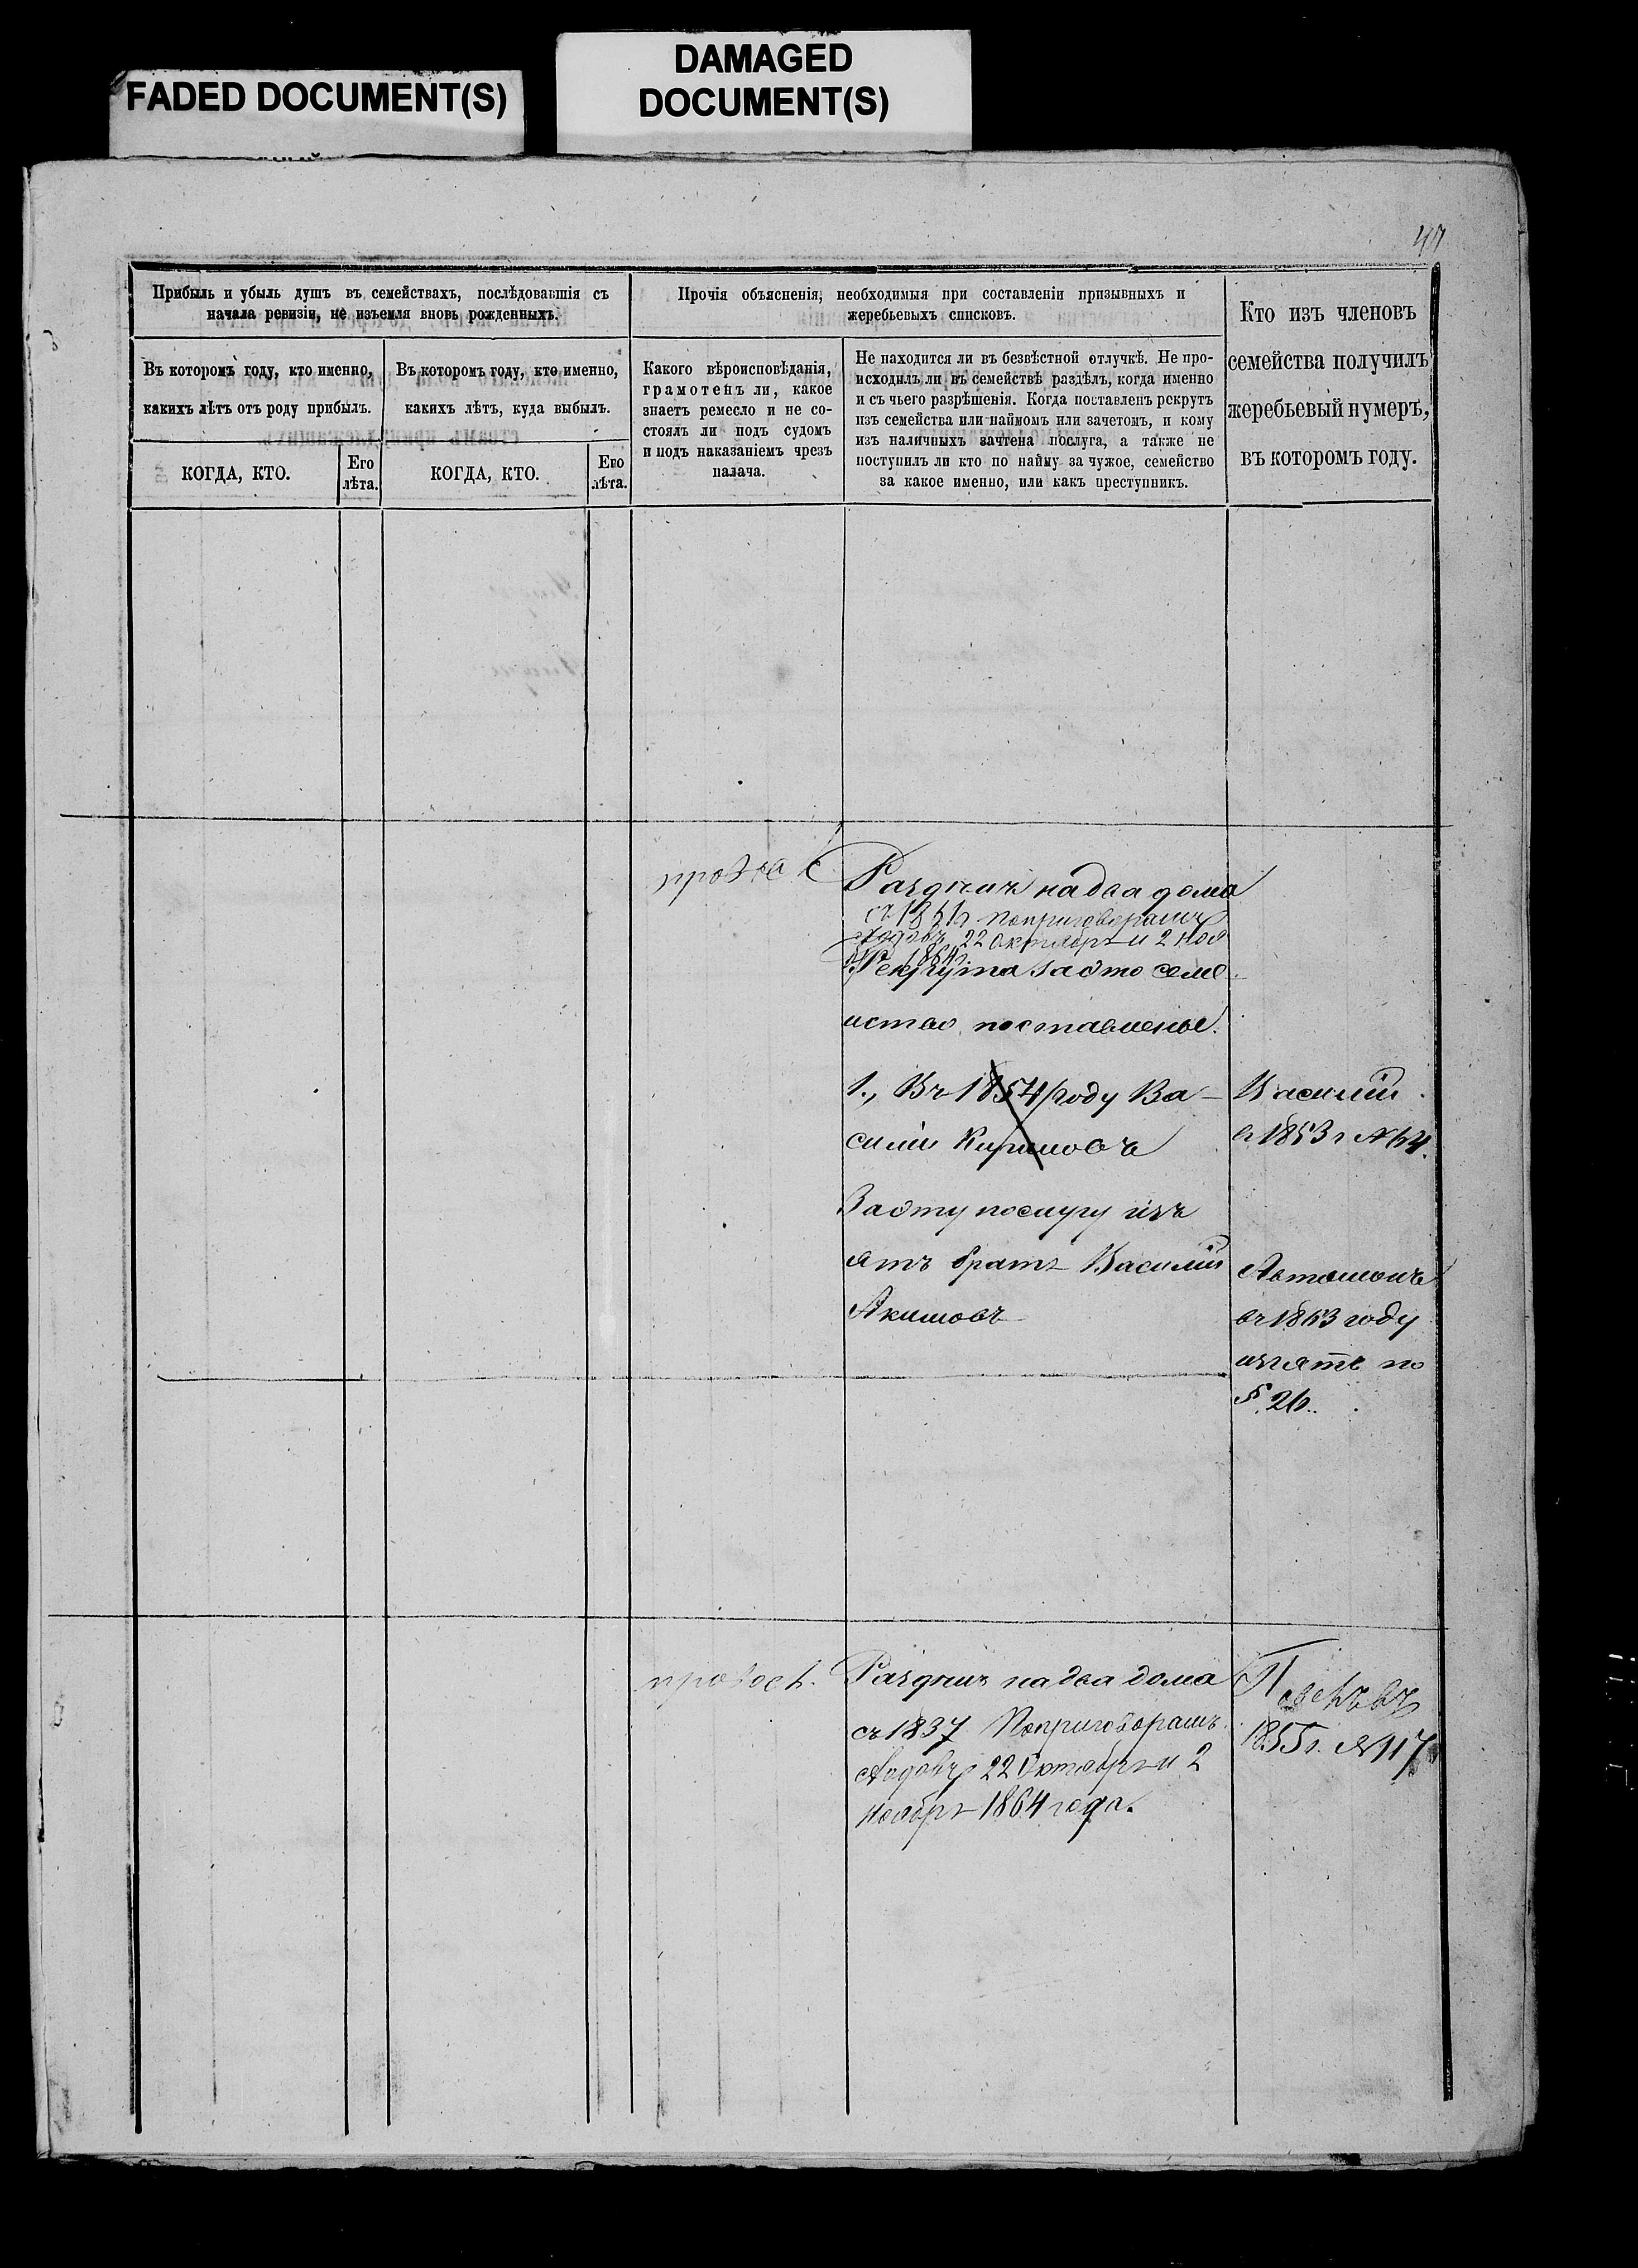 FADED DOCUMENT(S)
DAMAGED
DOCUMENT(S)
47
Прибыль и убыль душъ въ семействахъ, послѣдовавшія съ
начала ревизіи, не изъемля вновь рожденныхъ.
Въ которомъ году, кто именно,
какихъ лѣтъ отъ роду прибылъ.
КОГДА, КТО.
Его
лѣта.
Въ которомъ году, кто именно,
какихъ лѣтъ, куда выбылъ.
КОГДА, КТО.
Его
лѣта.
Прочія объясненія, необходимыя при составленіи призывныхъ и
жеребьевыхъ списковъ.
Какого вѣроисповѣданія,
грамотенъ ли, какое
знаетъ ремесло и не со-
стоялъ ли подъ судомъ
и подъ наказаніемъ чрезъ
палача.
Не находится ли въ безвѣстной отлучкѣ. Не про-
исходилъ ли въ семействѣ раздѣлъ, когда именно
и съ чьего разрѣшенія. Когда поставленъ рекрутъ
изъ семейства или наймомъ или зачетомъ, и кому
изъ наличныхъ зачтена послуга, а также не
поступилъ ли кто по найму за чужое, семейство
за какое именно, или какъ преступникъ.
Кто изъ членовъ
семейства получилъ
жеребьевый нумеръ,
въ которомъ году.
Раздѣлъ на два дома
по приговорамъ
22 октября и 2 ноя
Рекрута за это семе
иство поставленые
1., Въ 1854 году Ва-
силій
За эту послугу изъ
ятъ братъ Василій
Акимовъ
Василій
в 1853 г №
въ 1863 году
изъятъ по
§ 26.
Раздѣлъ на два дома
съ 1837 По приговорамъ
22 Октября и 2
Ноября 1864 года.
1855 г. № 117